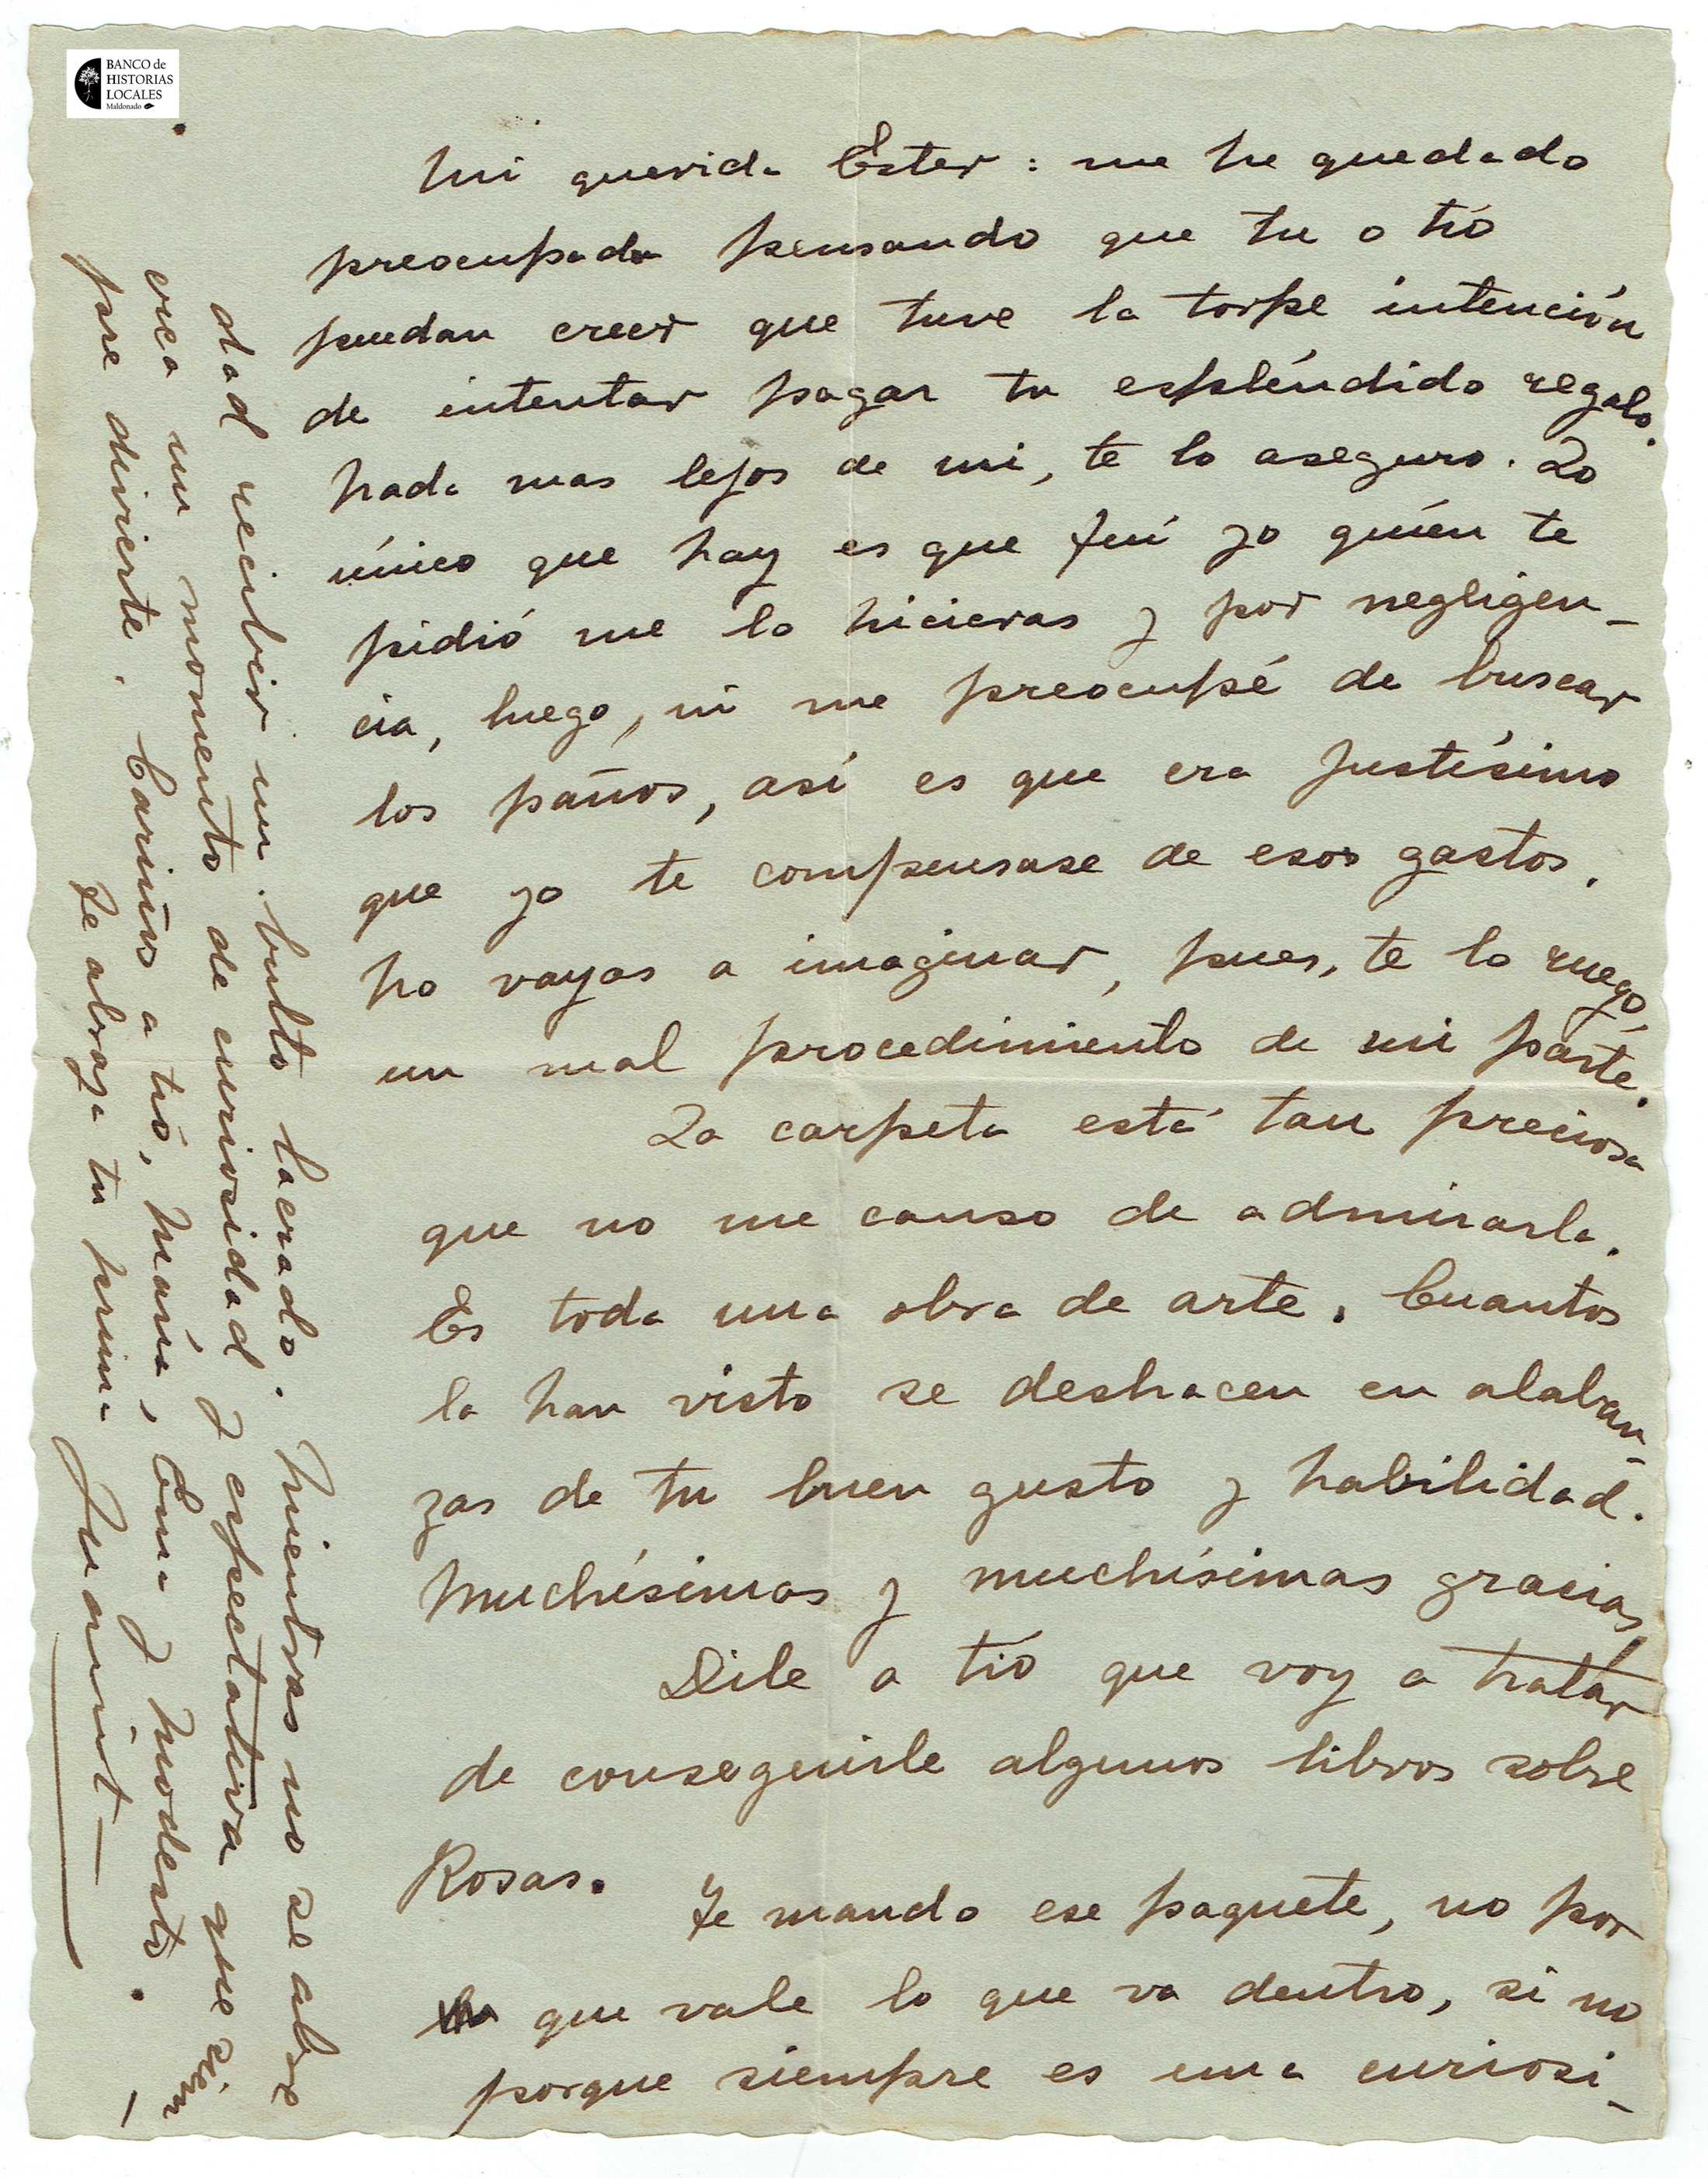 BANCO de
HISTORIAS
LOCALES
Maldonado
Mi querida Ester: me he quedado
preocupada pensando que tu o tío
puedan creer que tuve la torpe intención
de intentar pagar tu espléndido regalo.
Nada mas lejos de mi, te lo aseguro. Lo
único que hay es que fuí yo quién te
pidió me lo hicieras y por negligen-
cia, luego, ni me preocupé de buscar
los paños, así es que era justísimo
que yo te compensase de esos gastos.
No vayas a imaginar, pues, te lo ruego,
un mal procedimiento de mi parte.
La carpeta está tan preciosa
que no me canso de admirarla.
Es toda una obra de arte. Cuantos
la han visto se deshacen en alaban-
zas de tu buen gusto y habilidad.
Muchísimas y muchísimas gracias.
Dile a tío que voy a tratar
de conseguirle algunos libros sobre
Rosas.
Te mando ese paquete, no por
que vale lo que va dentro, si no
porque siempre es una curiosi-
dad recibir un bulto lacrado. Mientras no se abre
crea un momento de curiosidad y expectativa que siem-
pre divierte. Cariños a tío, María, Ema y Modesto.
Te abraza tu prima